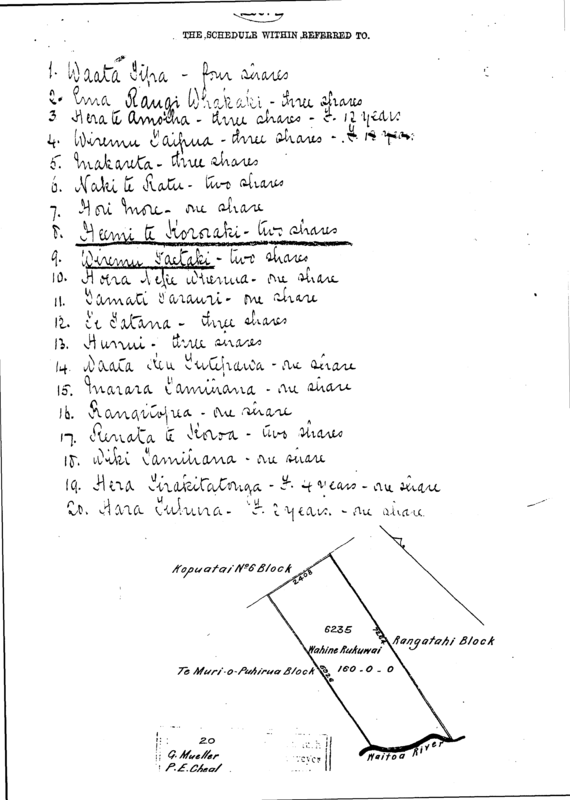 THE SCHEDULE WITHIN REFERRED TO.
1. Waata Tipa - four shares
2. Ema Rangi Whakaki - three shares
3 Hera te Amotha - three shares - F. 12 years
4. Wiremu Taipua - three shares - F.
5. Makareta - three shares
6. Naki te Ratu - two shares
7. Hori More - one share
8. Heemi te Kororaki - two shares
9. Wiremu Taetaki - two shares
10. Hoera Whenua - one share
11. Tamati Tarauri - one share
12. Te Tatana - three shares
13. Hunui - three shares
14. Waata - one share
15. Marara Tamihana - one share
16. Rangitopea - one share
17. Renata te Koroa - two shares
18. Wiki Tamihana - one share
19. Hera Tirakitatonga - F. 4 years - one share
20. Hara Tuhura - F. 2 years. - one share
Kopuatai No 6 Block
2408
6235
Rangatahi Block
Wahine Rukuwai
Te Muri-o-Puhirua Block
160-0-0
Waitoa River
20
G. Mueller
P. E. Cheal